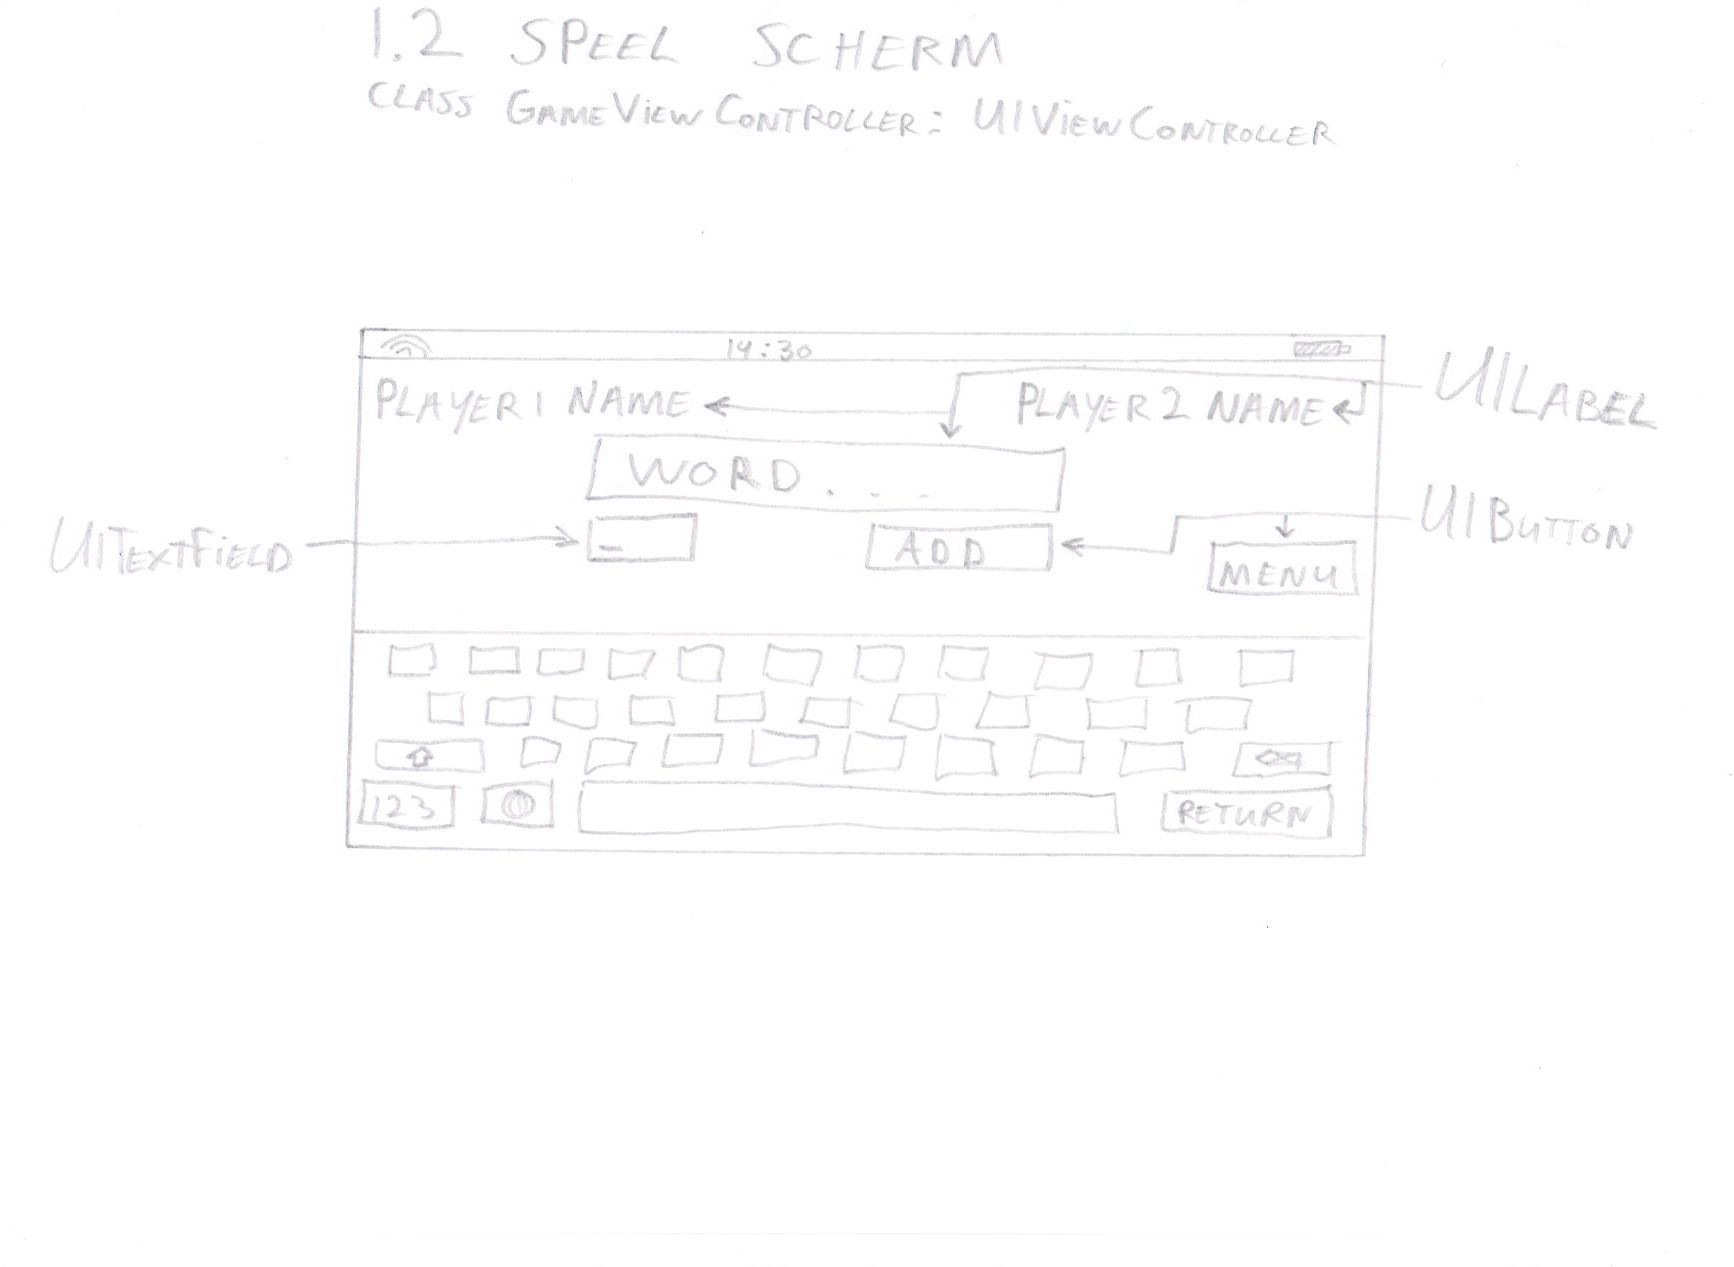 1.2 SPEEL SCHERM
CLASS GAMEVIEWCONTROLLER: UIVIEWCONTROLLER
14:30
PLAYER1 NAME PLAYER2 NAME UILABEL
WORD....
UITEXTFIELD _ ADD MENU UIBUTTON
123 RETURN